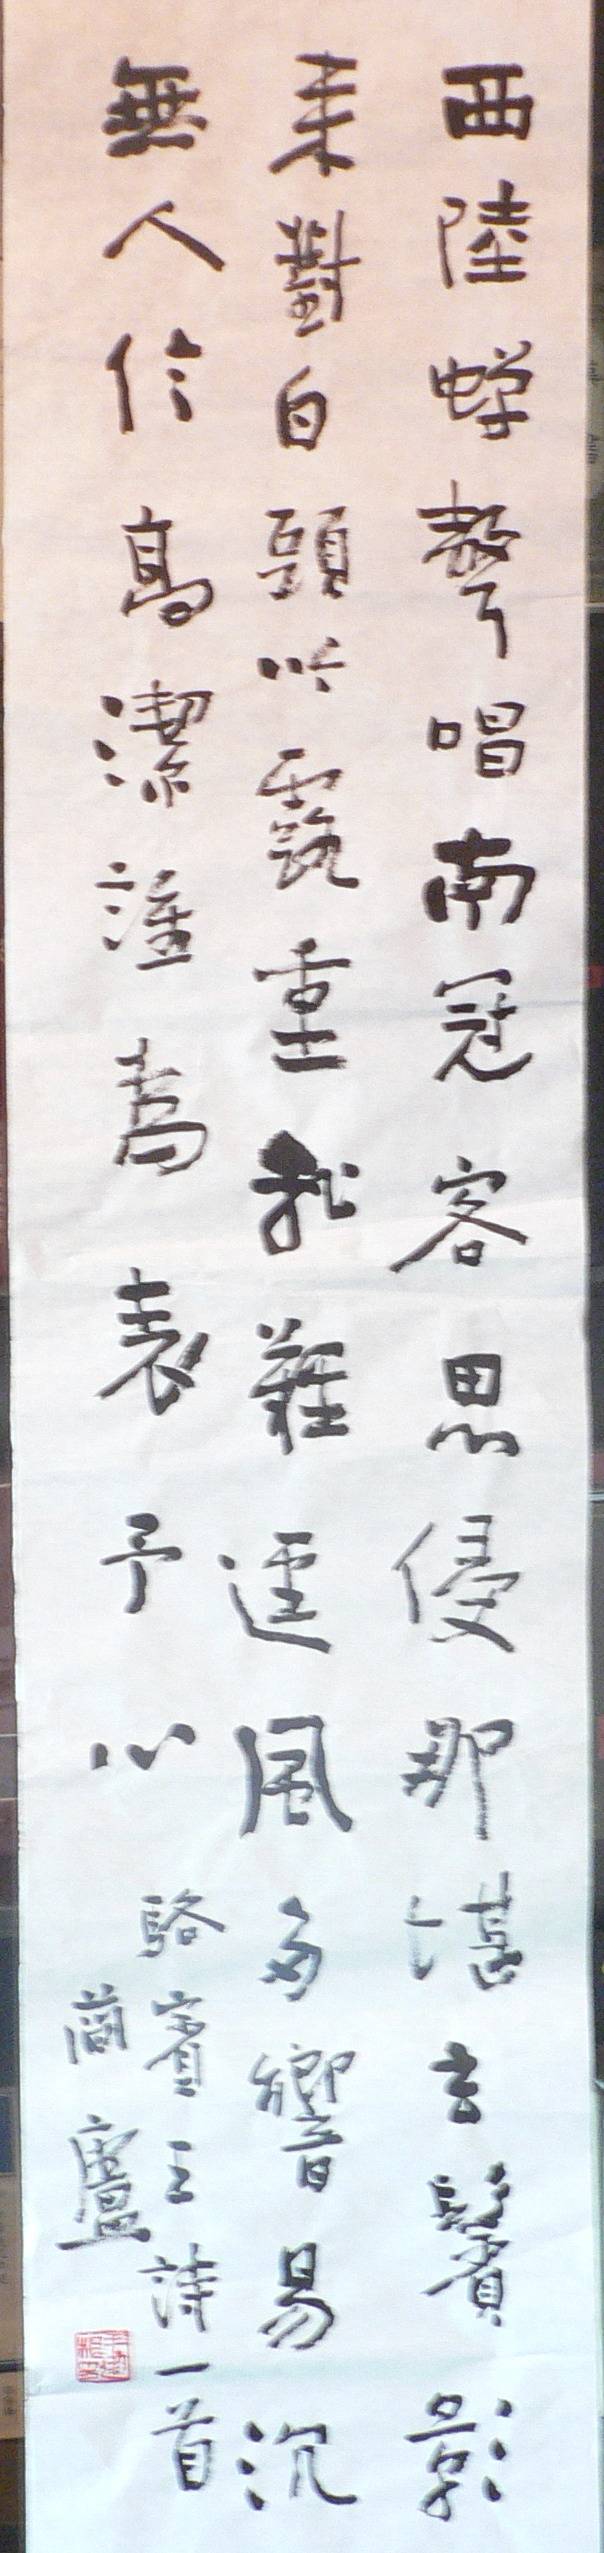 西陸蝉聲唱南冠客思侵那堪玄鬢影
来對白頭吟露重飛難進風多響易沉
無人信高潔誰為表予心
駱賓王詩一首
商廬